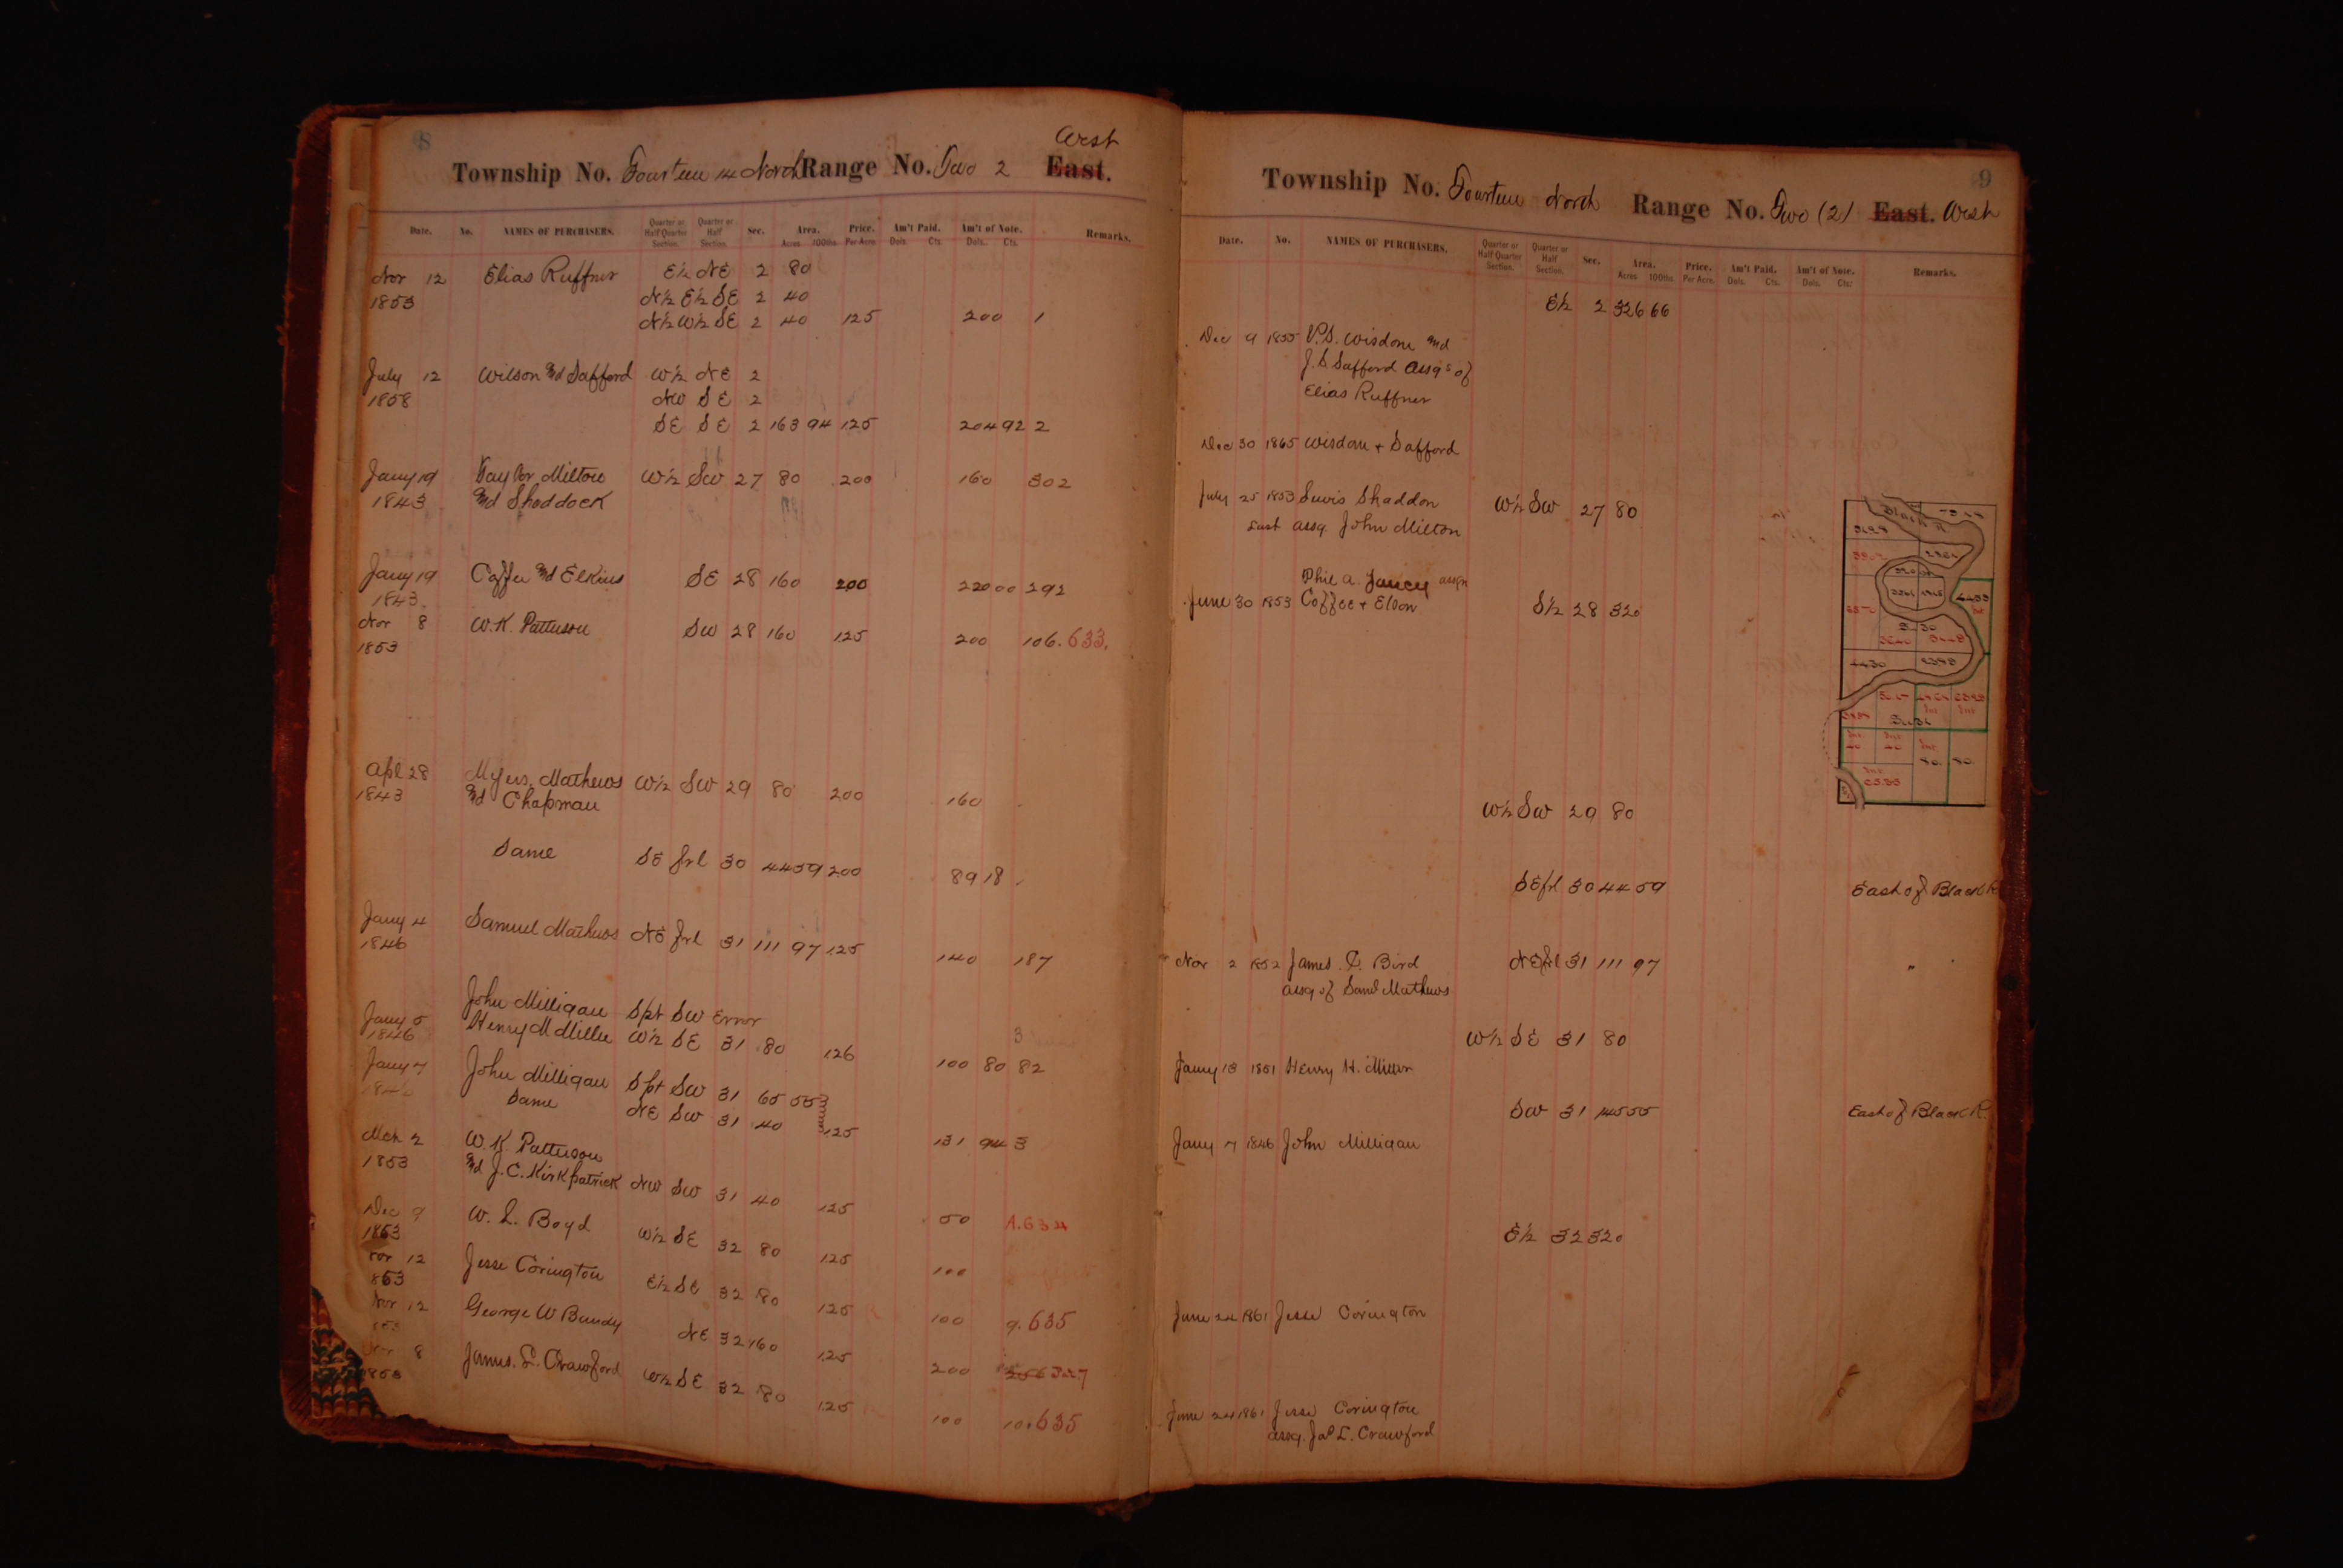 8
West
Township No. Fourteen 14 North Range No. Two 2 East.
Date. No. NAMES OF PURCHASERS. Quarter or Half Quarter Section. Quarter or Half Section. Sec. Area. Acres 100ths. Price. Per Acre. Am't Paid. Dols. Cts. Am't of Note. Dols. Cts. Remarks.
Nov 12 Elias Ruffner E½ NE 2 80
1853 N½ E½ SE 2 40
N½ W½ SE 2 40 125 200 1
July 12 Wilson and Safford W½ NE 2
1858 NW SE 2
SE SE 2 163 94 125 204 92 2
Jany 19 Milton W½ SW 27 80 200 160 302
1843 and Shaddock
Jany 19 Coffee and Elkins SE 28 160 200 220 00 292
1843
Nov 8 W.K. Patterson SW 28 160 125 200 106. 633.
1853
Apl 28 Myers, Mathews W½ SW 29 80 200 160
1843 and Chapman
Same SE frl 30 44 59 200 89 18
Jany 4 Samuel Mathews NE frl 31 111 97 125 140 187
1846
John Milligan Spt SW Error
Jany 5 Henry M Miller W½ SE 31 80 126 100 80 82
1846
3
Jany 7 John Milligan Spt SW 31 65 55
1846 Same NE SW 31 40 125 131 94 3
Mch 2 W. K. Patterson
1853 and J. C. Kirkpatrick NW SW 31 40 125 50 A. 634
Dec 9 W. L. Boyd W½ SE 32 80 125 100
1853
Nov 12 Jesse Covington E½ SE 32 80 125 100 9. 635
1853
Nov 12 George W Bundy NE 32 160 125 200
8 James. L. Crawford W½ SE 32 80 125 100 10. 635
1853
9
Township No. Fourteen North Range No. Two (2) East. West
Date. No. NAMES OF PURCHASERS. Quarter or Half Quarter Section. Quarter or Half Section. Sec. Area. Acres 100ths. Price. Per Acre. Am't Paid. Dols. Cts. Am't of Note. Dols. Cts. Remarks.
E½ 2 326 66
Dec 9 1855 V.S. Wisdom and
J. S Safford Assgs of
Elias Ruffner
Dec 30 1865 Wisdom + Safford
July 25 1853 Lewis Shaddon W½ SW 27 80
Last assg. John Milton
Phil A. Yancey assgn
June 30 1853 Coffee + Elson S½ 28 320
W½ SW 29 80
SE frl 30 44 59 East of Black R
Nov 2 1852 James. C. Bird NE frl 31 111 97 "
assg of Saml Mathews
W½ SE 31 80
Jany 13 1851 Henry H. Miller
SW 31 145 55 East of Black R.
Jany 7 1846 John Milligan
E½ 32 320
June 24 1861 Jesse Covington
June 24 1861 Jesse Covington
assg. Jas L. Crawford
Black R
4433
4430
80. 80.